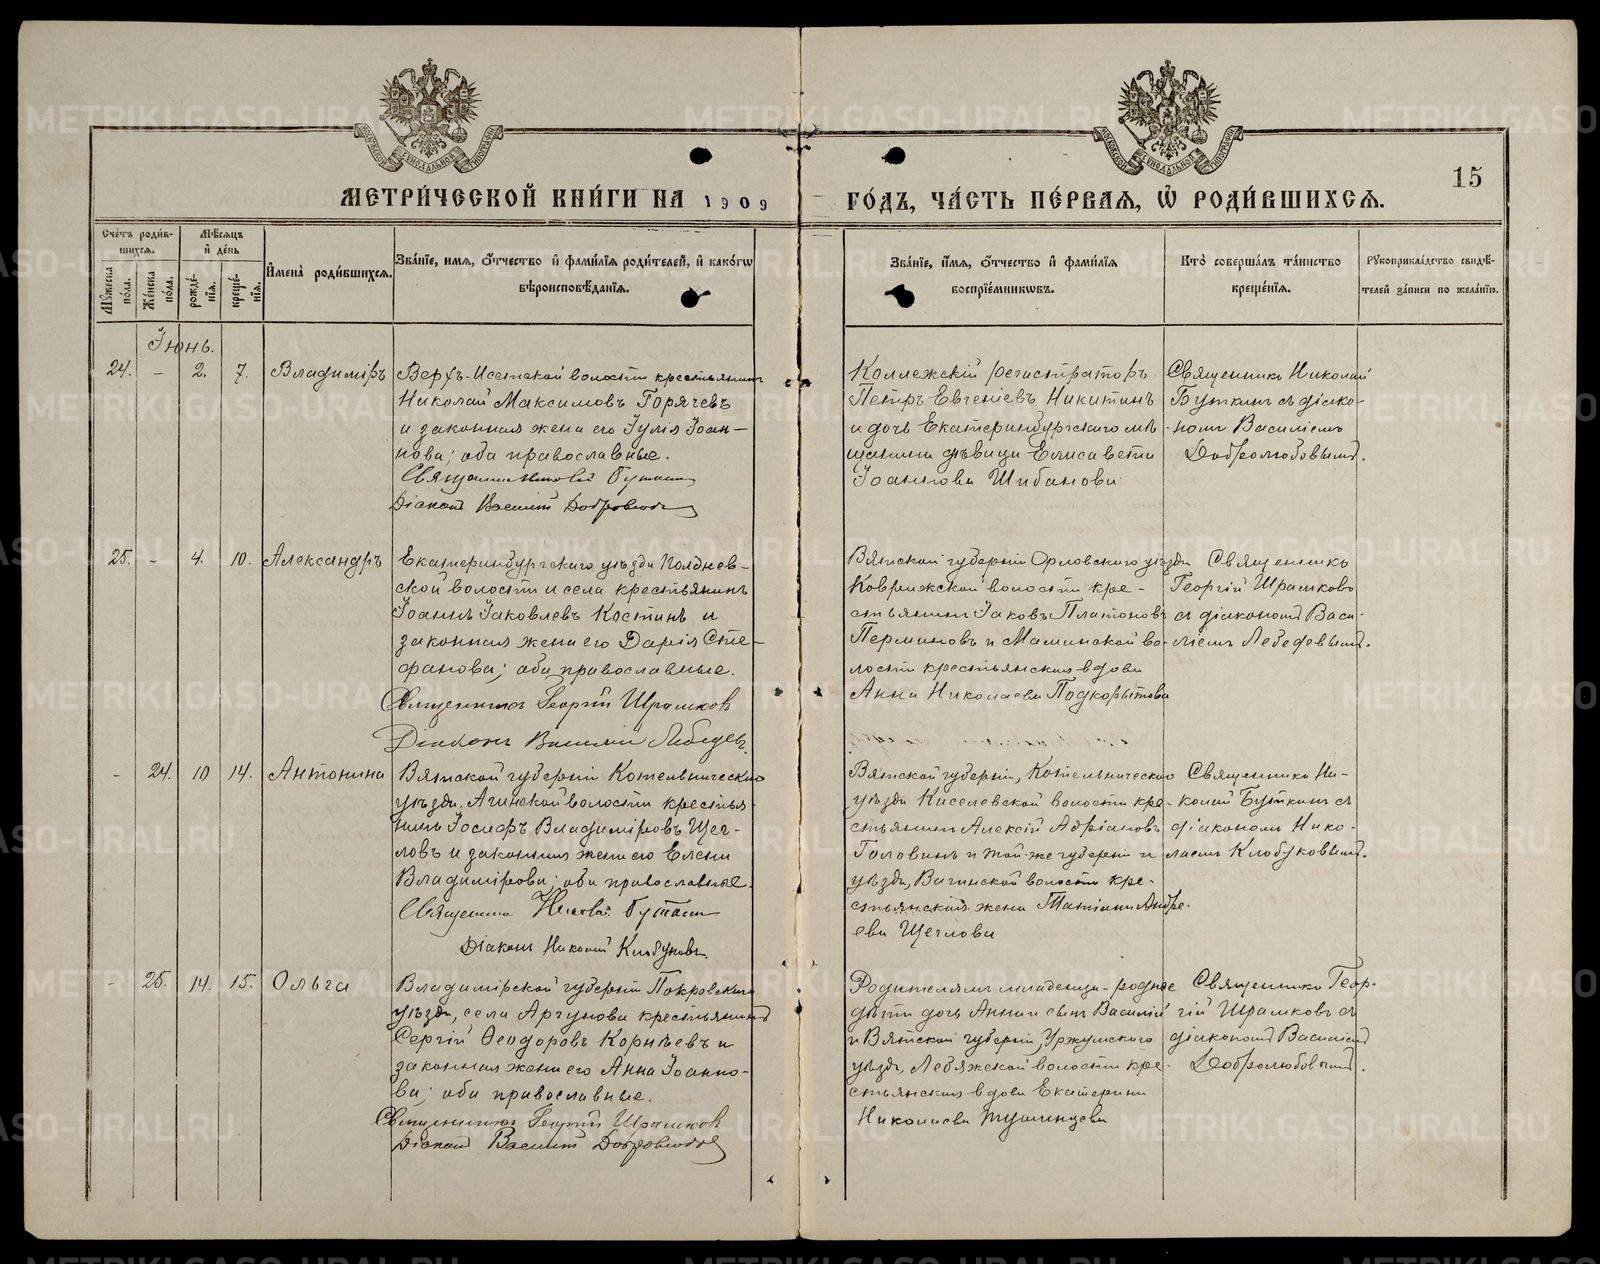 МЕТРИ́ЧЕСКОЙ КНИ́ГИ НА 1909
ГО́ДЪ, ЧА́СТЬ ПЕ́РВАЯ, Ѡ РОДИ́ВШИХСЯ.
15
Сче́тъ роди́в-
шихся.
Мѣ́сяцъ
и́ де́нь
Му́жеска по́ла.
Же́нска по́ла.
рожде́-
нїя.
креще́-
нїя.
И́мена̀ роди́вшихся.
Зва́нїе, имя, о́тчество и́ фами́лїя роди́телей, и́ како́гѡ
вѣроисповѣ́данїя.
Зва́нїе, и́мя, о́тчество и́ фами́лїя
воспрїе́мникѡвъ.
Кто̀ соверша́лъ та́инство
креще́нїя.
Рꙋкоприкла́дство свидѣ́-
телей за́писи по жела́нїю.
Іюнь.
24. - 2. 7. Владиміръ
Верхъ-Исетской волости крестьянинъ
Николай Максимовъ Горячевъ
и законная жена его Іулія Іоан-
нова; оба православные.
Священникъ Николай Буткинъ
Діаконъ Василій Добролюбовъ
Коллежскій регистраторъ
Петръ Евгеніевъ Никитинъ
и дочь Екатеринбургскаго мѣ
щанина дѣвица Елисавета
Іоаннова Шибанова
Священникъ Николай
Буткинъ съ діако-
номъ Василіемъ
Добролюбовымъ.
25. - 4. 10. Александръ
Екатеринбургскаго уѣзда Полднев-
ской волости и села крестьянинъ
Іоаннъ Іаковлевъ Костинъ и
законная жена его Дарія Сте-
фанова; оба православные.
Священникъ Георгій Шрамковъ
Діаконъ Василій Лебедевъ.
Вятской губерніи Орловскаго уѣзда
Коврижской волости кре-
стьянинъ Іаковъ Платоновъ
Перминовъ и Маминской во-
лости крестьянская вдова
Анна Николаева Подкорытова
Священникъ
Георгій Шрамковъ
съ діакономъ Васи-
ліемъ Лебедевымъ.
- 24. 10 14. Антонина
Вятской губерніи Котельническаго
уѣзда, Агинской волости крестья-
нинъ Іосифъ Владиміровъ Щег-
ловъ и законная жена его Елена
Владимірова; оба православные.
Священникъ Николай Буткинъ
Діаконъ Николай Клобуковъ.
Вятской губерніи, Котельническаго
уѣзда Киселевской волости кре-
стьянинъ Алексій Адріановъ
Головинъ и той-же губерніи и
уѣзда, Вагинской волости кре-
стьянская жена Татіана Андре-
ева Щеглова
Священникъ Ни-
колай Буткинъ съ
діакономъ Нико-
лаемъ Клобуковымъ.
- 25. 14. 15. Ольга
Владимірской губерніи Покровскаго
уѣзда, села Аргунова крестьянинъ
Сергій Ѳеодоровъ Корнѣевъ и
законная жена его Анна Іоанно-
ва; оба православные.
Священникъ Георгій Шрамковъ
Діаконъ Василій Добролюбовъ
Родителямъ младенца - родные
дѣти дочь Анна и сынъ Василій
и Вятской губерніи, Уржумскаго
уѣзда, Лебяжской волости кре-
стьянская вдова Екатерина
Николаева
Священникъ Геор-
гій Шрамковъ съ
діакономъ Василіемъ
Добролюбовымъ.
METRIKI.GASO-URAL.RU